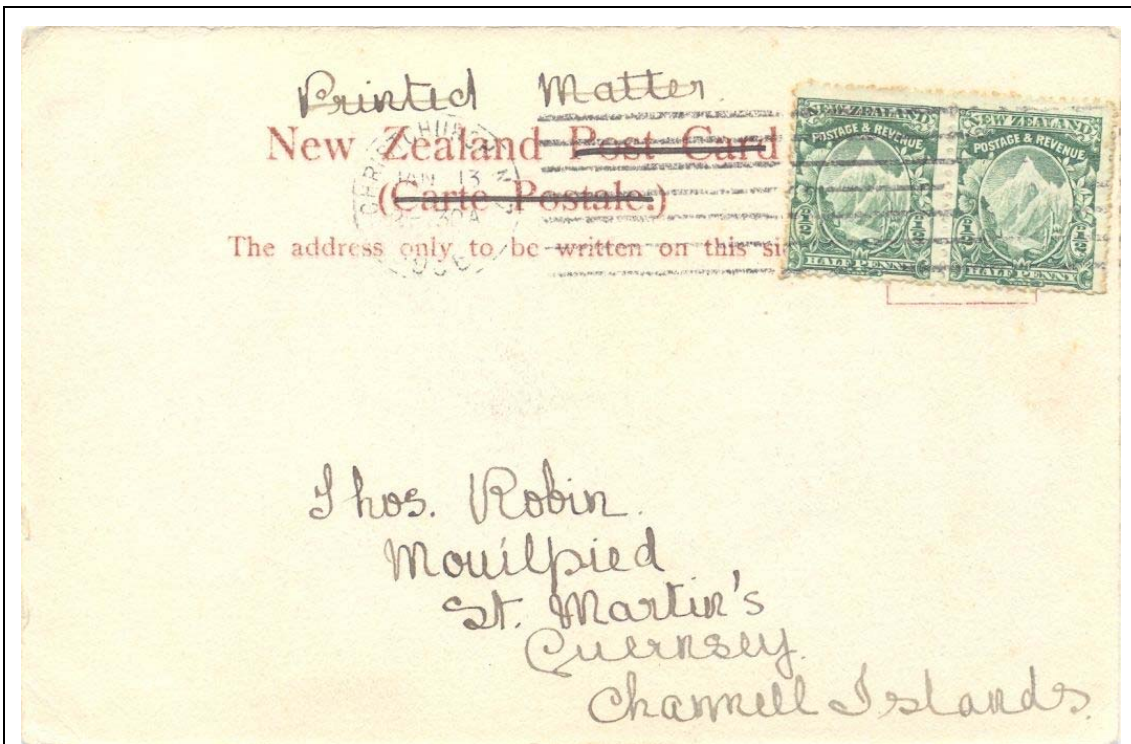 Printed Matter.
New Zealand Post Card
(Carte Postale.)
The address only to be written on this
NEW ZEALAND
POSTAGE & REVENUE
½D ½D
HALF PENNY
NEW ZEALAND
POSTAGE & REVENUE
½D ½D
HALF PENNY
JAN 13
Thos. Robin.
Mouilpied
St. Martin's
Guernsey.
Channell Islands.